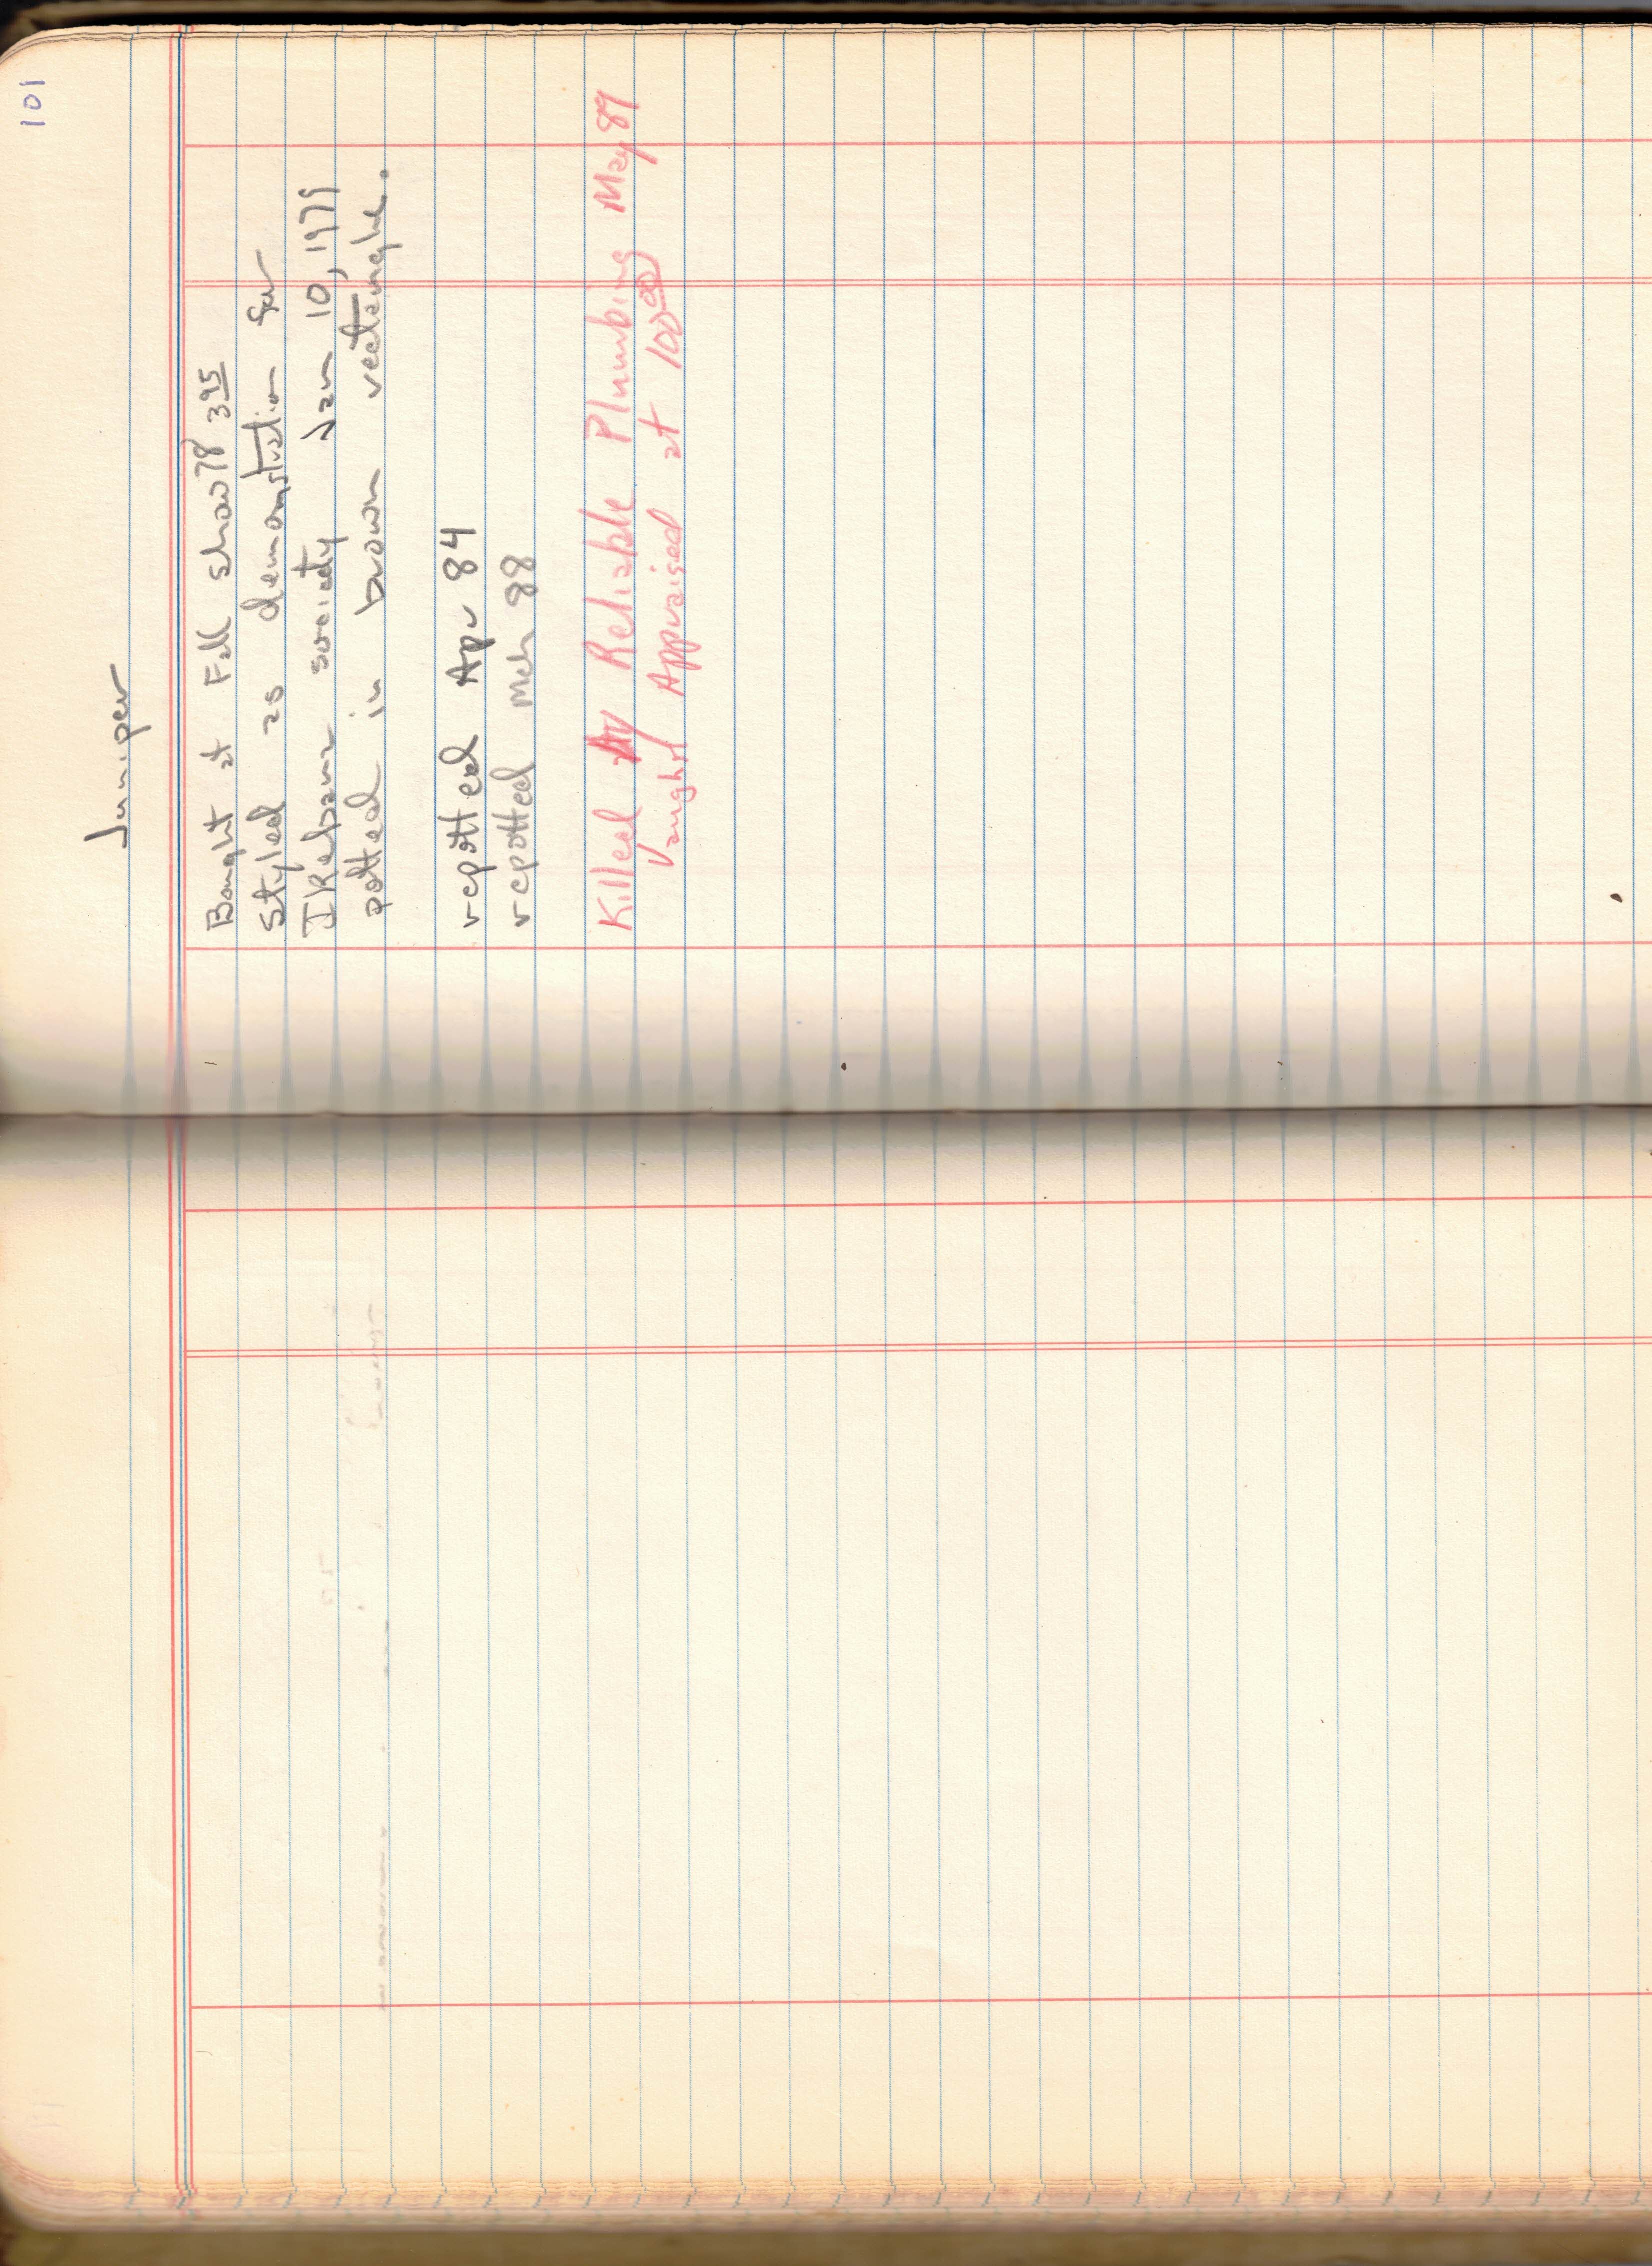 101
Juniper
Bought at Fall show 78 3.95
Styled as demonstration for
Ikebana society Jan 10, 1979
potted in brown rectangle.
repotted Apr 84
repotted Mch 88
Killed by Reliable Plumbing May 89
Vaughn Appraised at 100.00